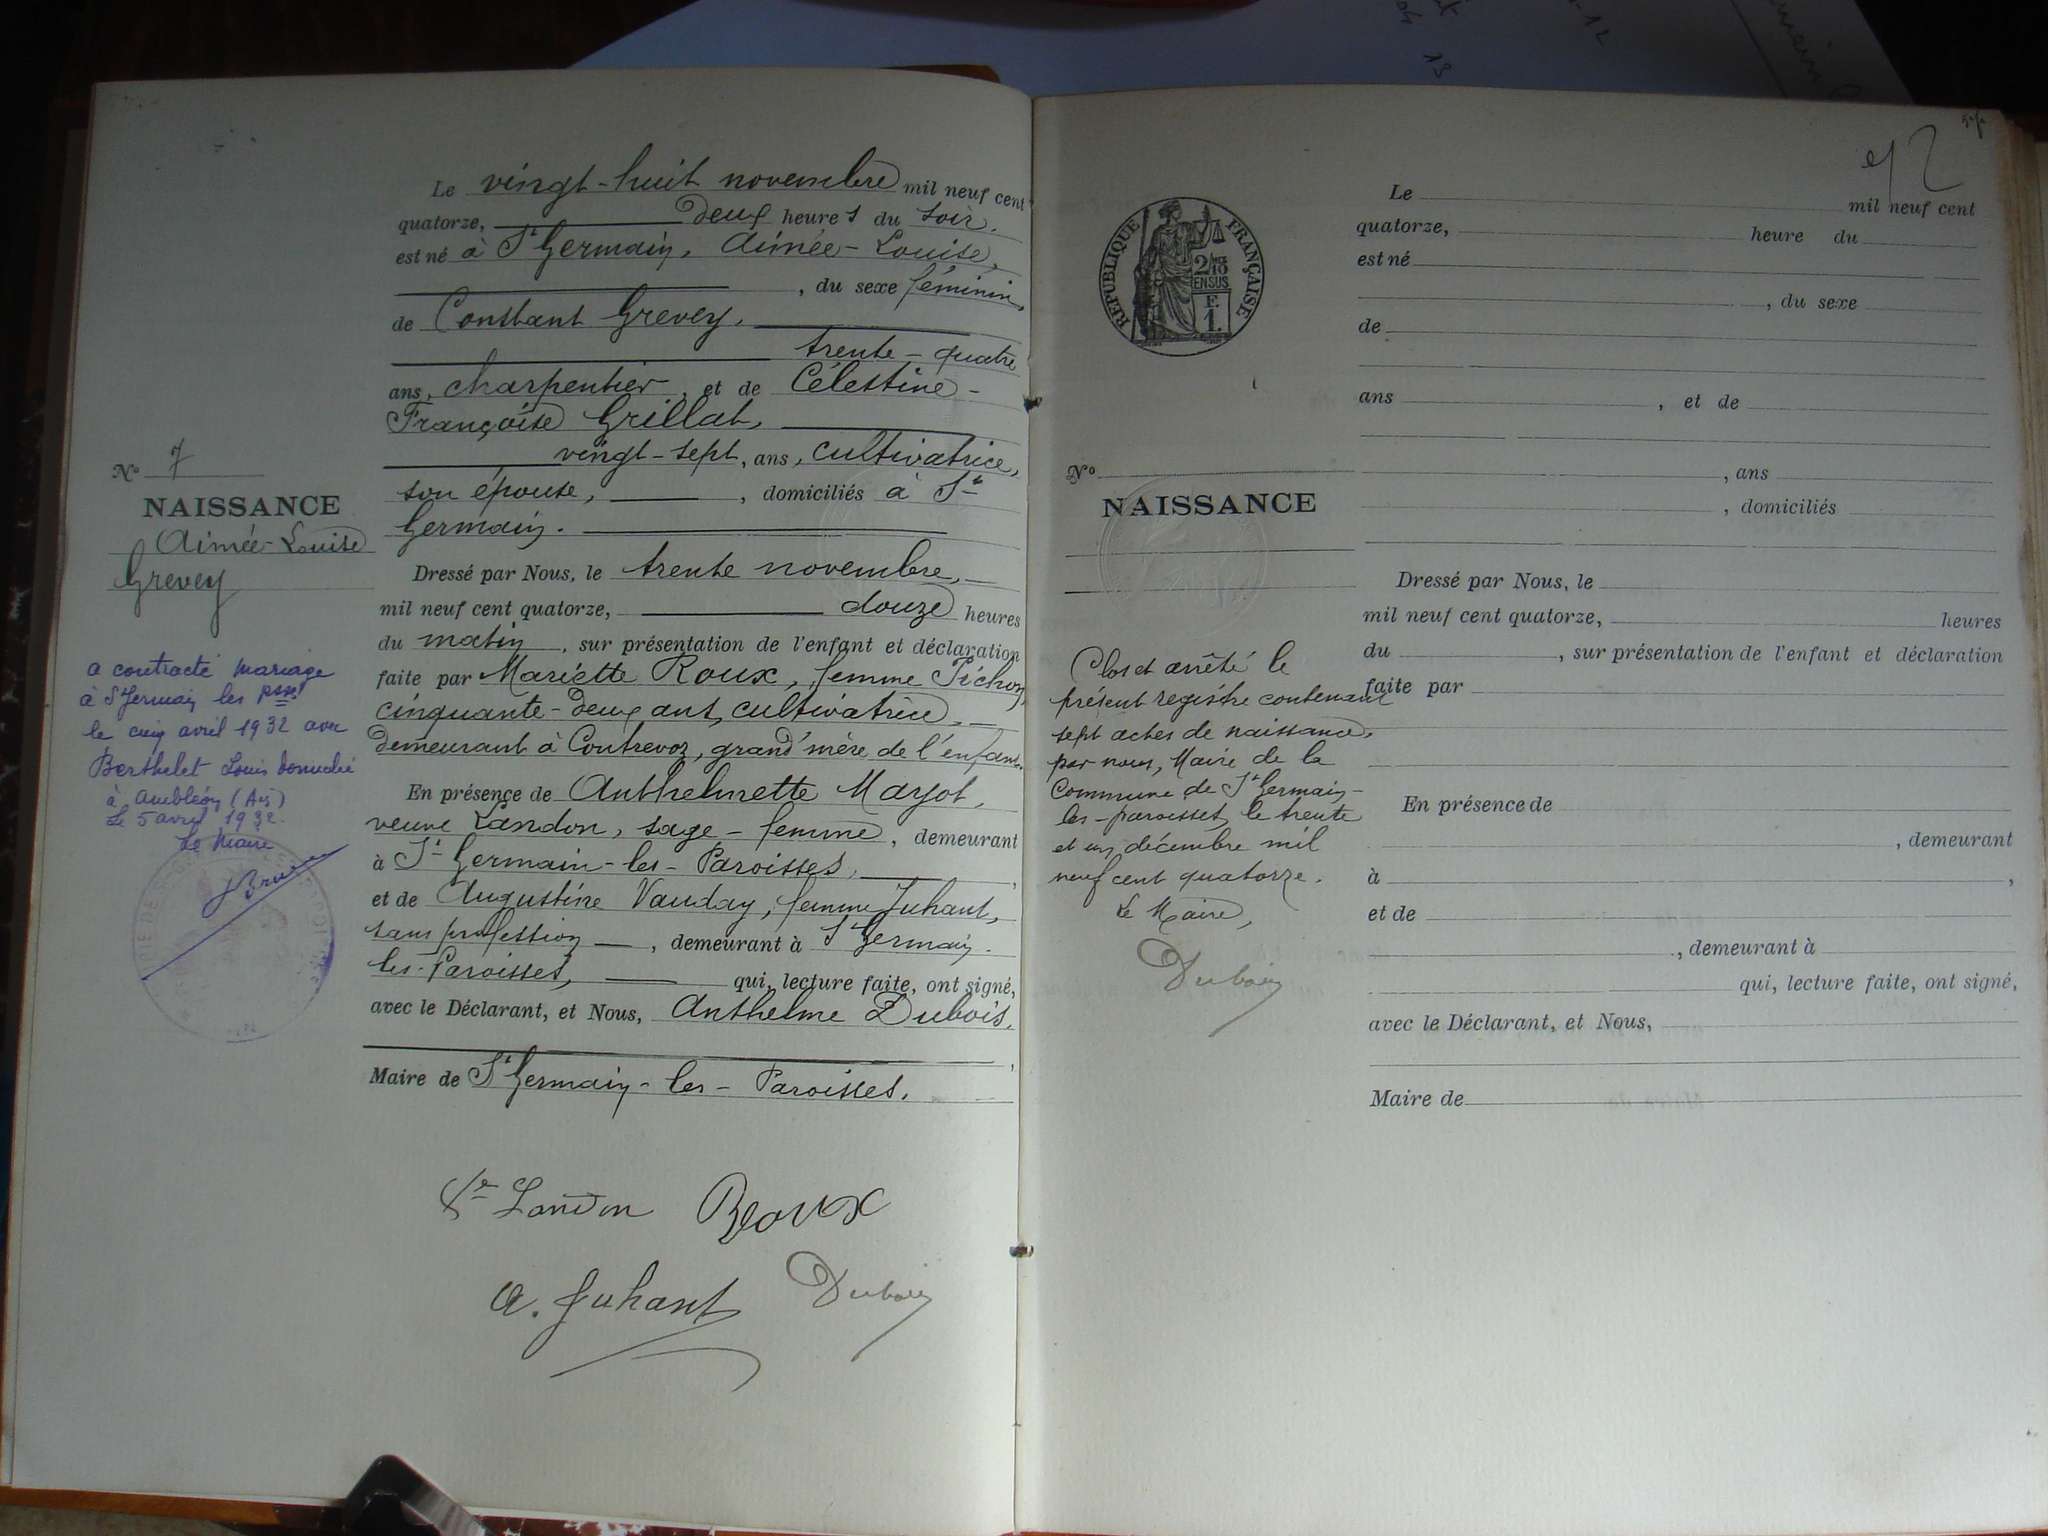 Le vingt-huit novembre mil neuf cent
quatorze, deux heures du soir.
est né à St Germain, Aimée-Louise,
, du sexe féminin,
de Constant Grevey,
trente-quatre
ans, charpentier, et de Célestine-
Françoise Grillat,
vingt-sept, ans, cultivatrice,
son épouse, , domiciliés à St
Germain.
Dressé par Nous, le trente novembre,
mil neuf cent quatorze, douze heures
du matin, sur présentation de l'enfant et déclaration
faite par Mariette Roux, femme Pichon,
cinquante-deux ans, cultivatrice,
demeurant à Contrevoz, grand'mère de l'enfant.
En présence de Anthelmette Marjot,
veuve Landon, sage-femme, demeurant
à St-Germain-les-Paroisses,
et de Augustine Vauday, femme Juhant,
sans profession, demeurant à St Germain-
les-Paroisses, qui, lecture faite, ont signé,
avec le Déclarant, et Nous, Anthelme Dubois,
Maire de St Germain-les-Paroisses.
Ve Landon Roux
A. Juhant Dubois
No 7
NAISSANCE
Aimée-Louise
Grevey
a contracté mariage
à St Germain les Pses
le cinq avril 1932 avec
Berthelet Louis domicilié
à Ambléon (Ain)
Le 5 avril 1932.
Le Maire
52
RÉPUBLIQUE FRANÇAISE
2/10
EN SUS
F.
1.
Le mil neuf cent
quatorze, heure du
est né
, du sexe
de
ans , et de
, ans
, domiciliés
No
NAISSANCE
Dressé par Nous, le
mil neuf cent quatorze, heures
du , sur présentation de l'enfant et déclaration
faite par
En présence de
, demeurant
à ,
et de
, demeurant à
qui, lecture faite, ont signé,
avec le Déclarant, et Nous,
Maire de
Clos et arrêté le
présent registre contenant
sept actes de naissance,
par nous, Maire de la
Commune de St Germain-
les-paroisses, le trente
et un décembre mil
neuf cent quatorze.
Le Maire,
Dubois